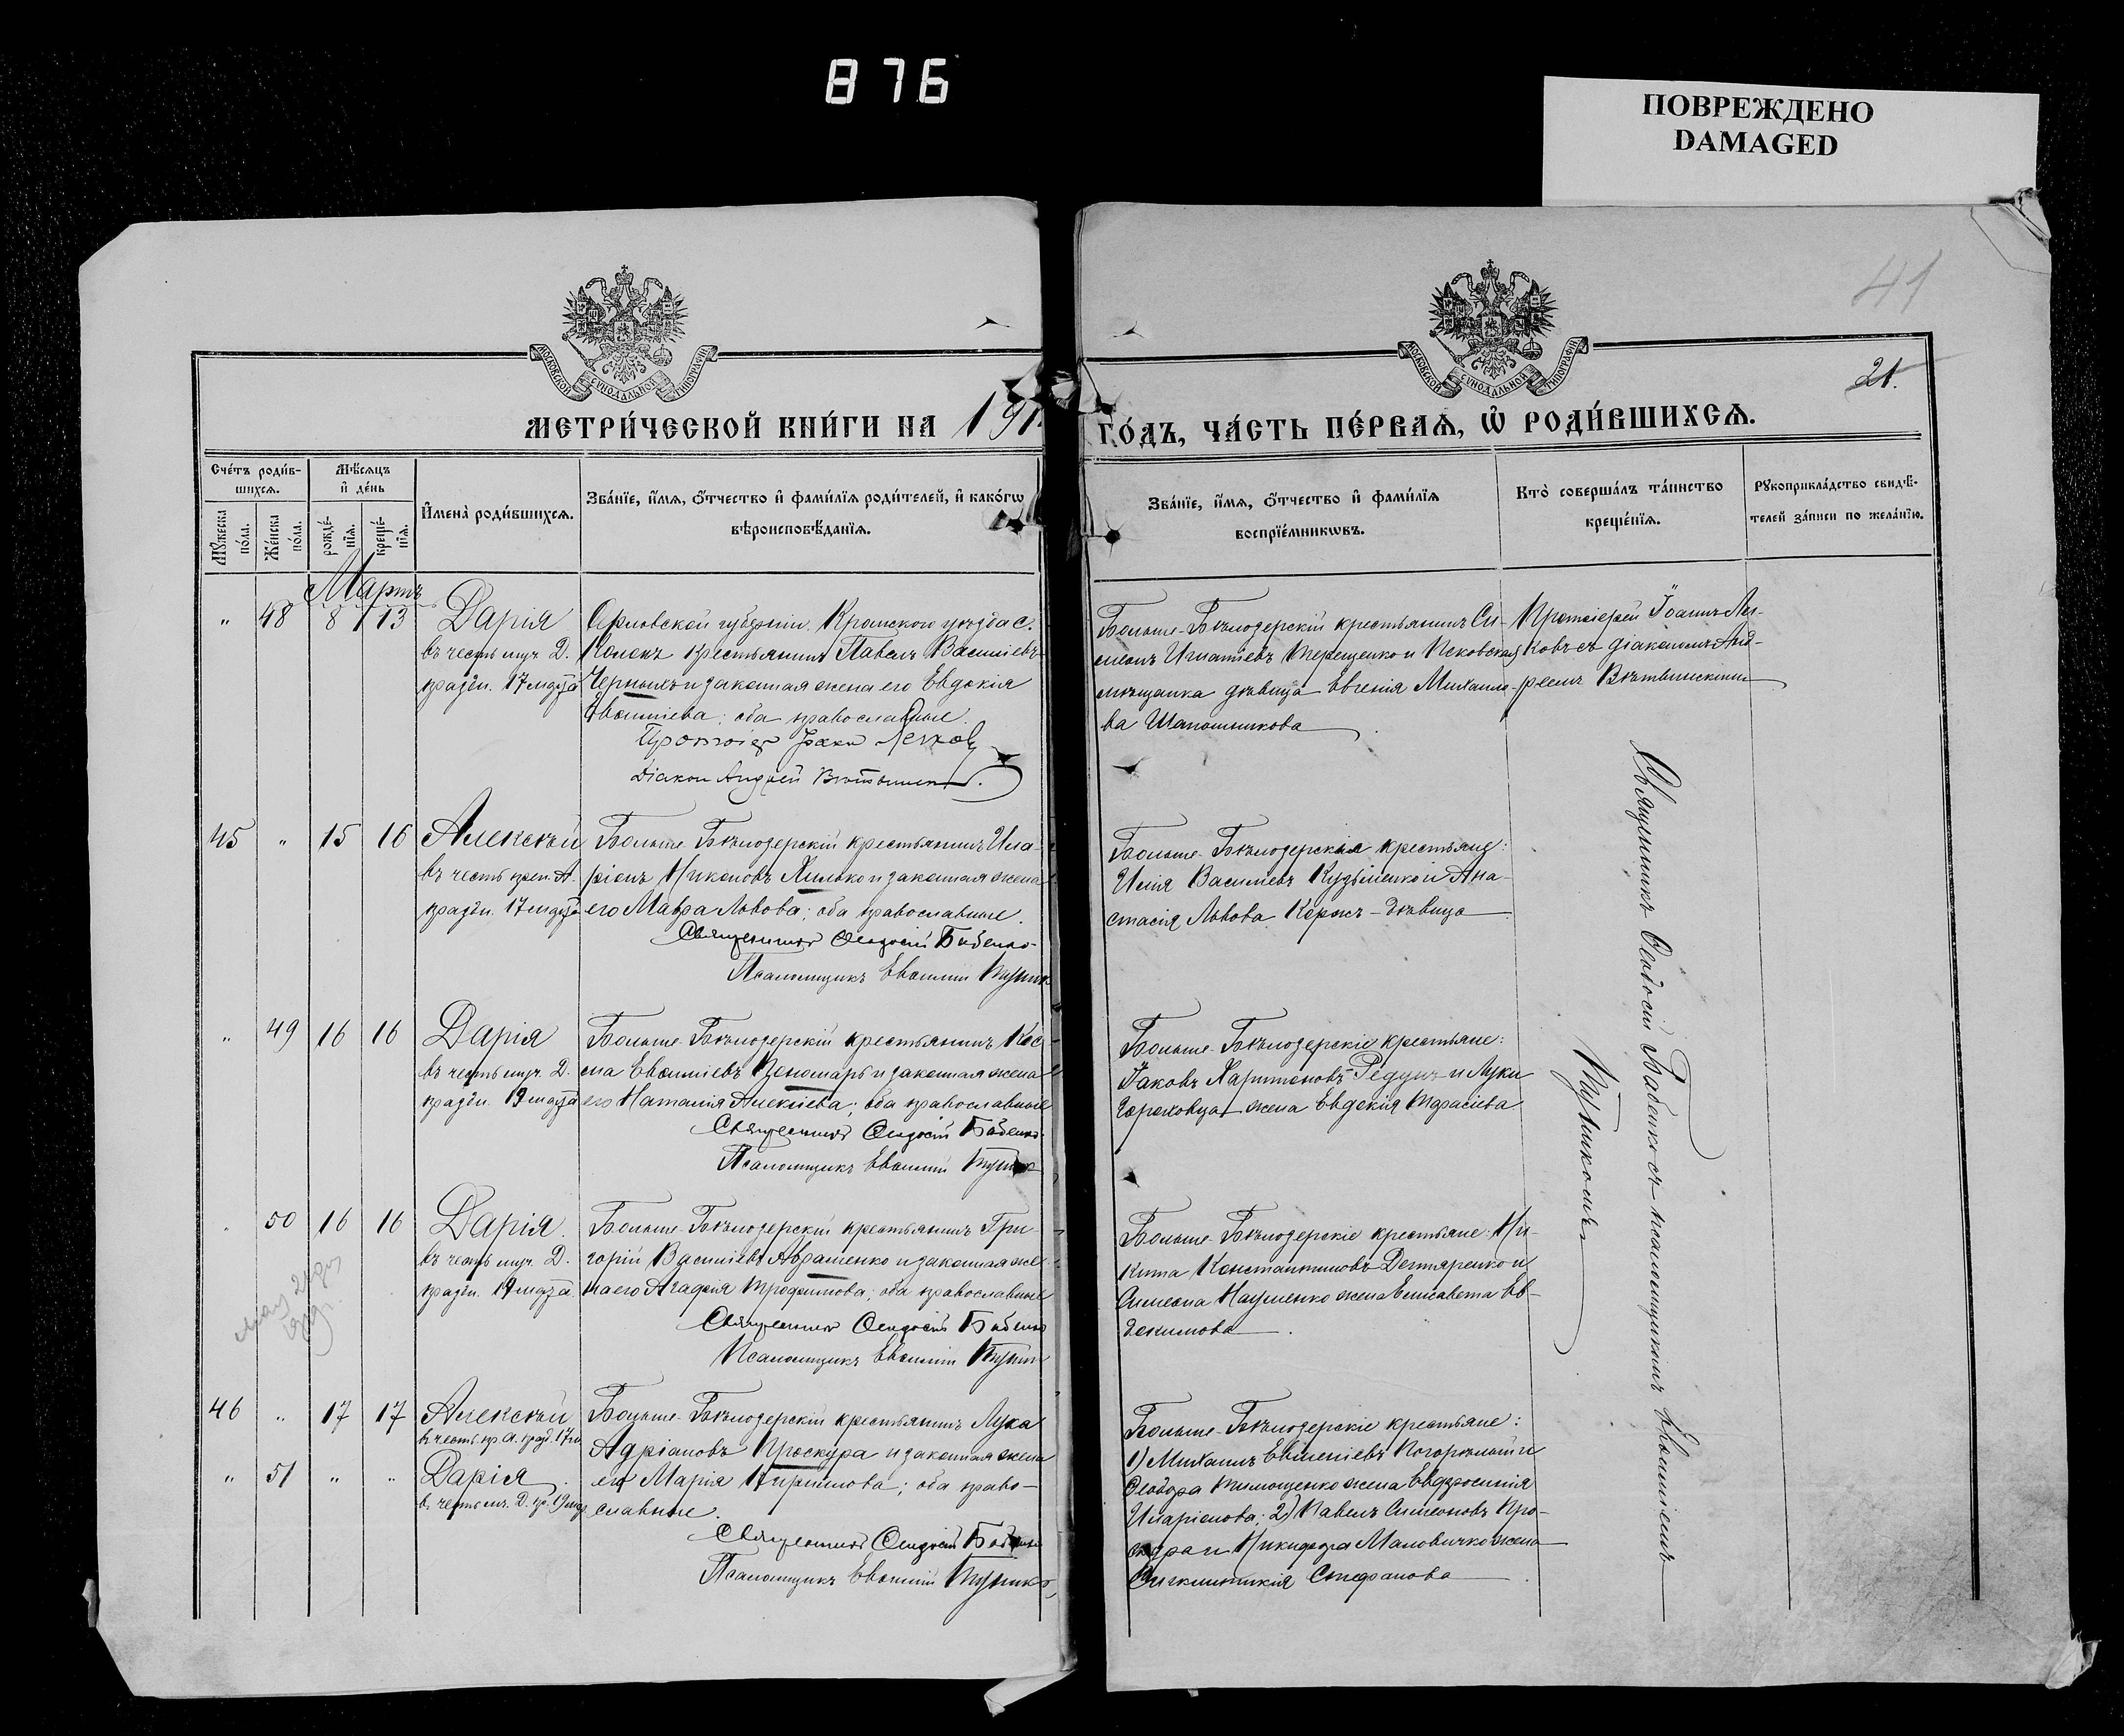 876
ПОВРЕЖДЕНО
DAMAGED
41
21.
МОСКОВСКОЙ СѴНОДАЛЬНОЙ ТИПОГРАФІИ
МОСКОВСКОЙ СѴНОДАЛЬНОЙ ТИПОГРАФІИ
МЕТРИ́ЧЕСКОЙ КНИ́ГИ НА 191
ГО́ДЪ, ЧА́СТЬ ПЕ́РВАѦ, Ѡ҆ РОДИ́ВШИХСѦ.
Сче́тъ роди́в-
шихсѧ.
Мѣ́сѧцъ
и҆ де́нь
Мꙋ́жеска по́ла.
Же́нска по́ла.
рожде́-
нїѧ.
креще́-
нїѧ.
И҆мена̀ роди́вшихсѧ.
Зва́нїе, и҆́мѧ, ѻ҆́тчество и҆ фами́лїѧ роди́телей, и҆ како́гѡ
вѣроисповѣ́данїѧ.
Зва́нїе, и҆́мѧ, ѻ҆́тчество и҆ фами́лїѧ
воспрїе́мникѡвъ.
Кто̀ соверша́лъ та́инство
креще́нїѧ.
Рꙋкоприкла́дство свидѣ́-
телей за́писи по жела́нїю.
Мартъ
" 48 8 13 Дарія
въ честь муч. Д.
праздн. 17 марта
Орловской губерніи. Кромского уѣзда с.
крестьянинъ Павелъ Васильевъ
Черныхъ и законная жена его Евдокія
Евѳиміева; оба православные.
Протоіер Іоанн Легков
Діакон Андрей
Больше-Бѣлозерскій крестьянинъ Си-
меонъ Игнатіевъ Терещенко и Псковская
мѣщанка дѣвица Евгенія Михайло-
ва Шапошникова
Протоіерей Іоаннъ Лег-
ковъ съ діакономъ Анд-
реемъ
45 " 15 16 Алексѣй
въ честь преп. А.
праздн. 17 марта
Больше-Бѣлозерскій крестьянинъ Ила-
ріонъ Никоновъ Хилько и законная жена
его Мавра Львова; оба православные.
Священникъ Ѳеодосій Бабенко
Псаломщикъ Евѳимій
Больше-Бѣлозерскіе крестьяне:
Илія Васильевъ Кузьменко и Ана-
стасія Львова Коржъ - дѣвица
" 49 16 16 Дарія
въ честь муч. Д.
праздн. 19 марта
Больше-Бѣлозерскій крестьянинъ Кос-
ма Евѳиміевъ Пономарь и законная жена
его Наталія Алексіева; оба православные
Священникъ Ѳеодосій Бабенко
Псаломщикъ Евѳимій
Больше-Бѣлозерскіе крестьяне:
Іаковъ Харитоновъ Редунъ и Луки
Гороховца жена Евдокія Тарасіева
50 16 16 Дарія
въ честь муч. Д.
праздн. 19 марта
Больше-Бѣлозерскій крестьянинъ Гри-
горій Васильевъ Авраменко и законная же-
на его Агафія Трофимова; оба православные
Священникъ Ѳеодосій Бабенко
Псаломщикъ Евѳимій
Больше-Бѣлозерскіе крестьяне: Ни-
кита Константиновъ Дегтяренко и
Симеона Науменко жена Елисавета Ев-
докимова
46 " 17 17 Алексѣй
въ честь пр. А. празд. 17 м
" 51 " " Дарія
въ честь м. Д. пр. 19 мар
Больше-Бѣлозерскій крестьянинъ Лука
Адріановъ Проскура и законная жена
его Марія Кириллова; оба право-
славные.
Священникъ Ѳеодосій Бабенко
Псаломщикъ Евѳимій
Больше-Бѣлозерскіе крестьяне:
1) Михаилъ Евменіевъ Погорѣлый и
Ѳеодора Тимощенко жена Евфросинія
Иларіонова; 2) Павелъ Симеоновъ Про-
скура и Никифора Маловичко жена
Синклитикія Стефанова
Священникъ Ѳеодосій Бабенко съ псаломщикомъ Евѳиміемъ